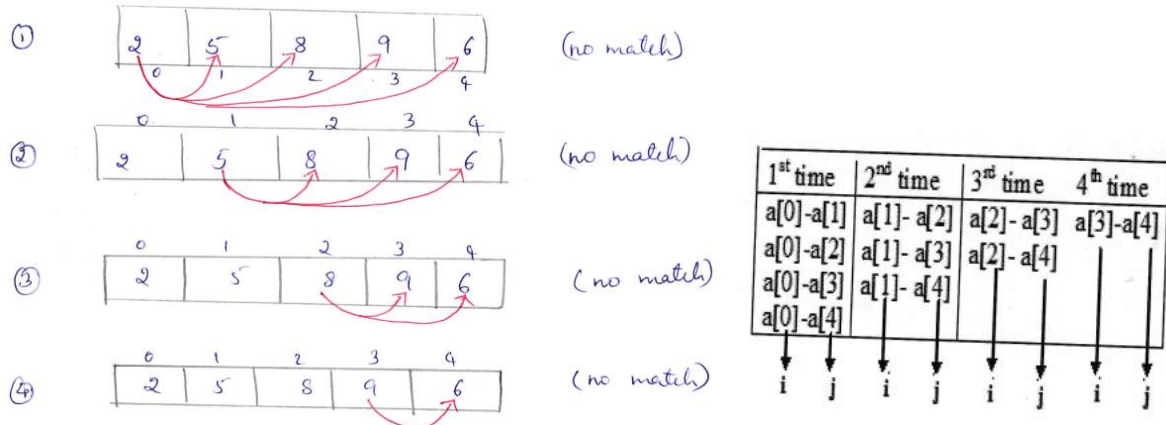 ① 2 5 8 9 6 (no match)
0 1 2 3 4
0 1 2 3 4
② 2 5 8 9 6 (no match)
0 1 2 3 4
③ 2 5 8 9 6 (no match)
0 1 2 3 4
④ 2 5 8 9 6 (no match)
1st time 2nd time 3rd time 4th time
a[0]-a[1] a[1]- a[2] a[2]- a[3] a[3]-a[4]
a[0]-a[2] a[1]- a[3] a[2]- a[4]
a[0]-a[3] a[1]- a[4]
a[0]-a[4]
i j i j i j i j